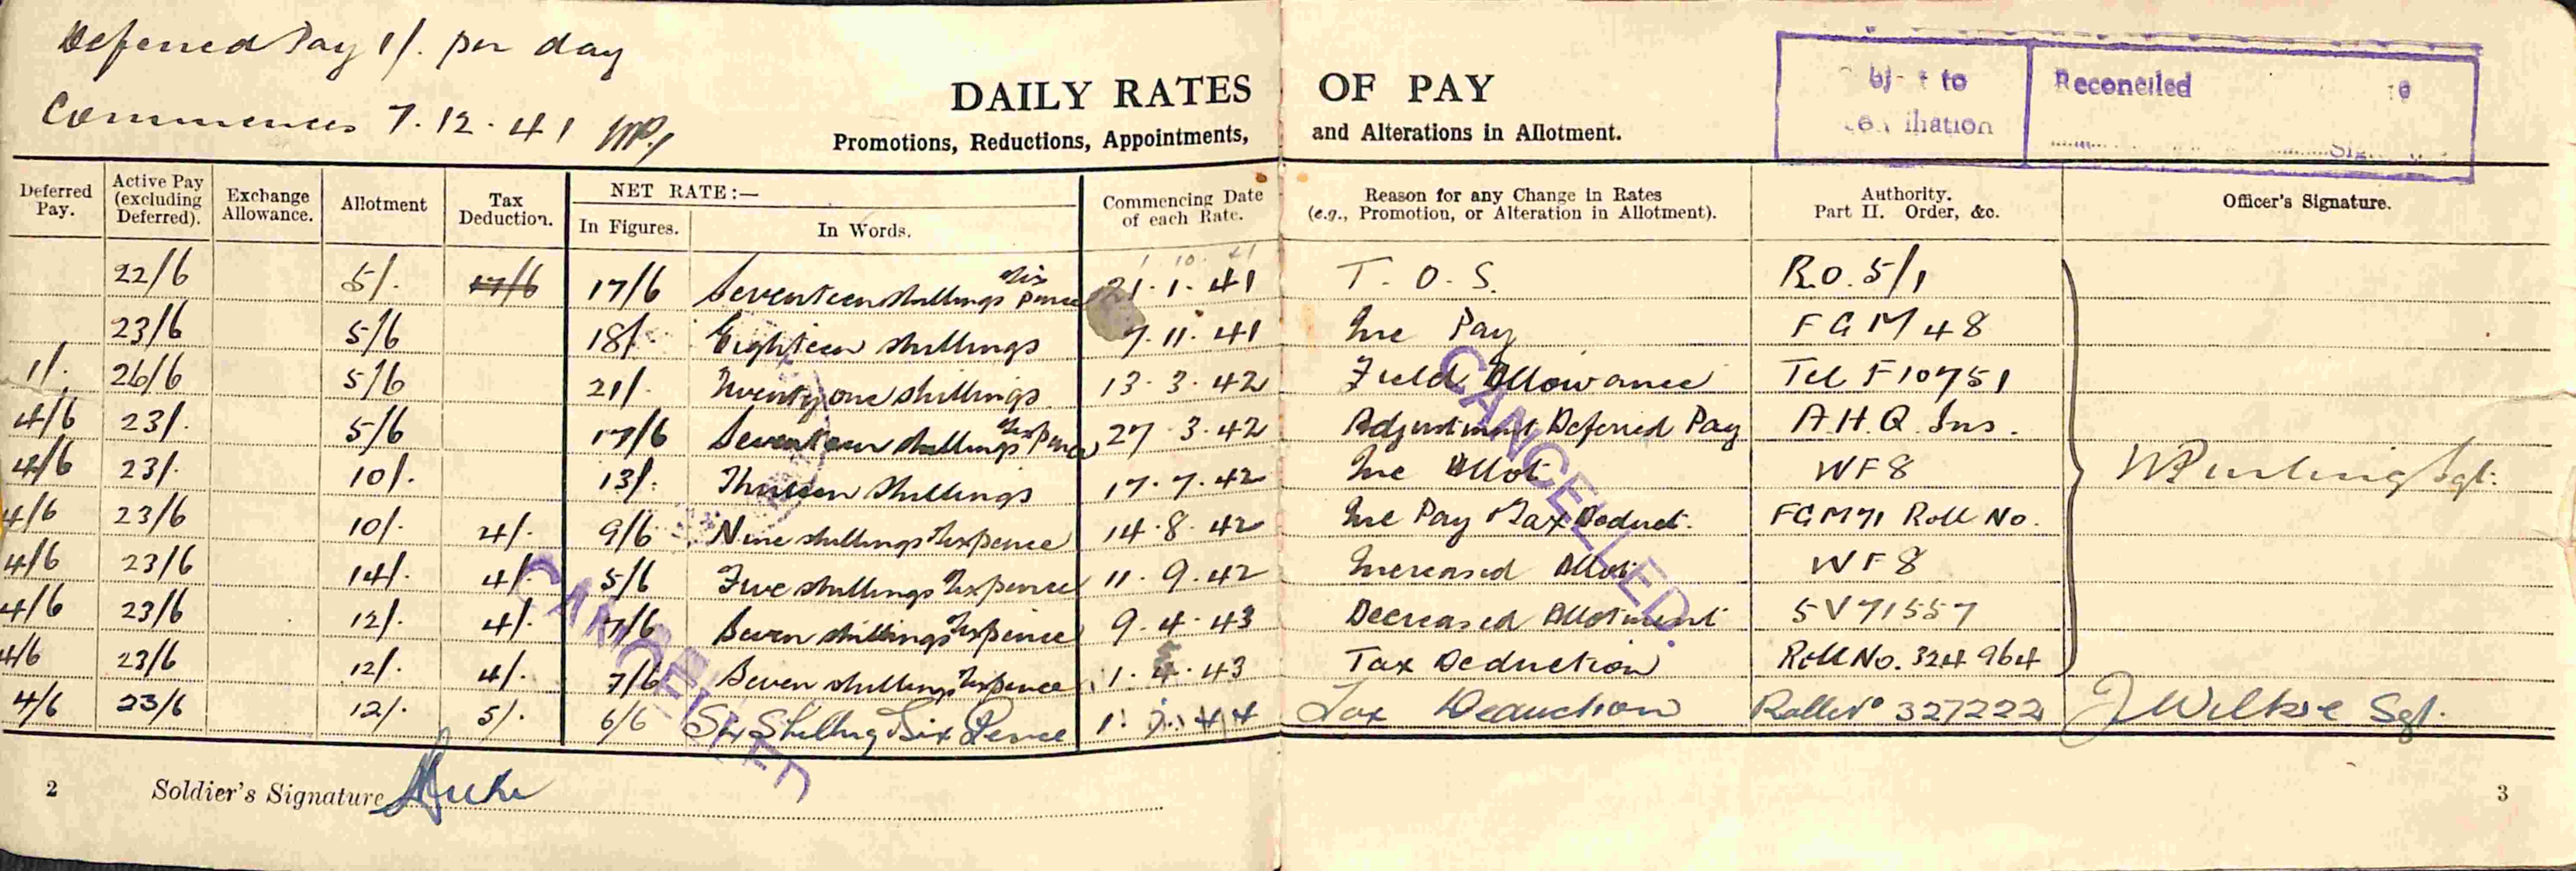 Deferred Pay 1/. per day
Commences 7.12.41
DAILY RATES OF PAY
Promotions, Reductions, Appointments, and Alterations in Allotment.
to
Reconciled
Deferred Pay. Active Pay (excluding Deferred). Exchange Allowance. Allotment Tax Deduction. NET RATE:— In Figures. In Words. Commencing Date of each Rate. Reason for any Change in Rates (e.g., Promotion, or Alteration in Allotment). Authority. Part II. Order, &c. Officer's Signature.
1 10 41
22/6 5/. 17/6 17/6 Seventeen shillings six pence 21.1.41 T.O.S. R.O. 5/1
23/6 5/6 18/. Eighteen shillings 7.11.41 Inc Pay FGM 48
1/. 26/6 5/6 21/. Twenty one shillings 13.3.42 Field Allowance Tel F10751
4/6 23/. 5/6 17/6 Seventeen shillings sixpence 27.3.42 Adjustment Deferred Pay A.H.Q. Ins.
4/6 23/. 10/. 13/. Thirteen shillings 17.7.42 Inc Allot WF8
4/6 23/6 10/. 4/. 9/6 Nine shillings sixpence 14.8.42 Inc Pay & Tax Deduct. FGM71 Roll No.
4/6 23/6 14/. 4/. 5/6 Five shillings sixpence 11.9.42 Increased Allot WF8
4/6 23/6 12/. 4/. 7/6 Seven shillings sixpence 9.4.43 Decreased Allotment SV71557
4/6 23/6 12/. 4/. 7/6 Seven shillings sixpence 1.4.43 Tax Deduction Roll No. 324964
4/6 23/6 12/. 5/. 6/6 Six Shilling Six Pence 1. 44 Tax Deduction Roll No 327222 J Wilkie Sgt.
Sgt.
CANCELLED
CANCELLED.
2 Soldier's Signature
3